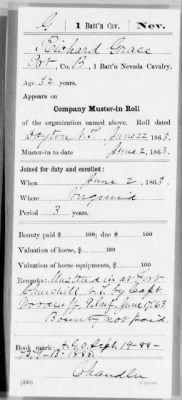 G | 1 Batt'n Cav. | Nev.
Richard Grace
Pvt, Co. B, 1 Batt'n Nevada Cavalry.
Age 32 years.
Appears on
Company Muster-in Roll
of the organization named above. Roll dated
Dayton N.T. June 22, 1863.
Muster-in to date June 2, 1863.
Joined for duty and enrolled:
When June 2, 1863.
Where Virginia
Period 3 years.
Bounty paid $ 100; due $ 100
Valuation of horse, $ 100
Valuation of horse equipments, $ 100
Remarks: Mustered in at Fort
Churchill N.T. by Capt
June 17, '63
Bounty not paid
Book mark: A.G.O. Sept. 19-88-
-B-1888.
Chandler
(356) Copyist.